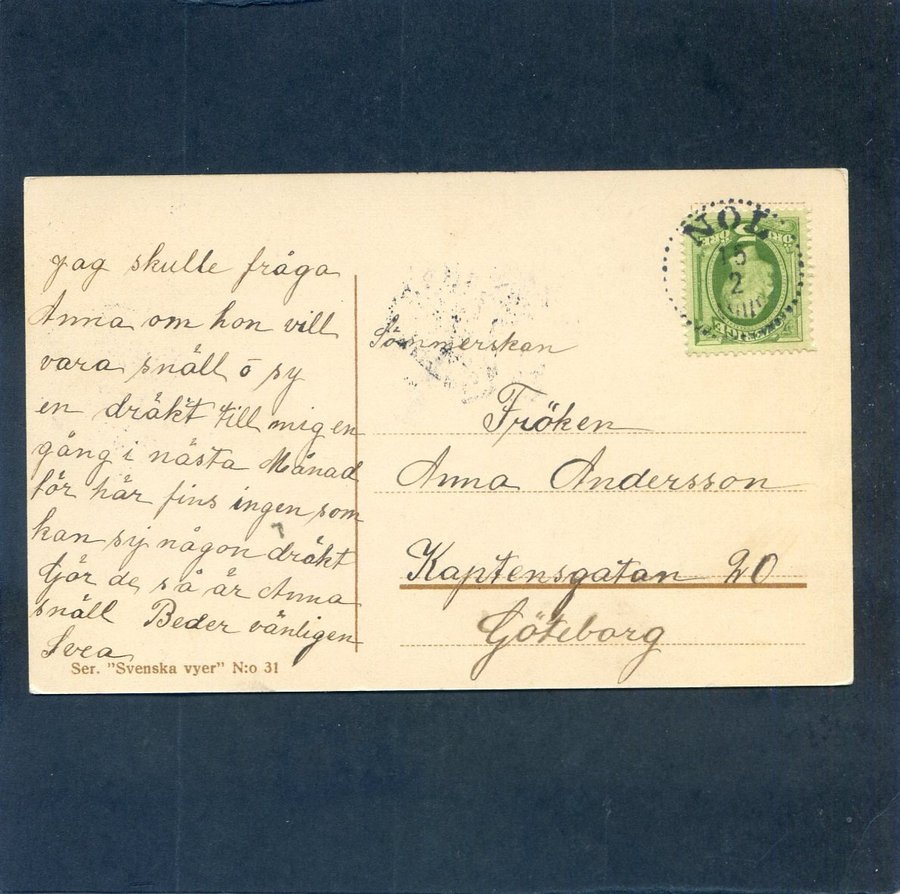 jag skulle fråga
Anna om hon vill
vara snäll ō sy
en dräkt till mig en
gång i nästa Månad
för här fins ingen som
kan sy någon dräkt
Gör de så är Anna
snäll Beder vänligen
Svea
Ser. "Svenska vyer" N:o 31
NOL
15
2
Sömmerskan
Fröken
Anna Andersson
Kaptensgatan 20
Göteborg